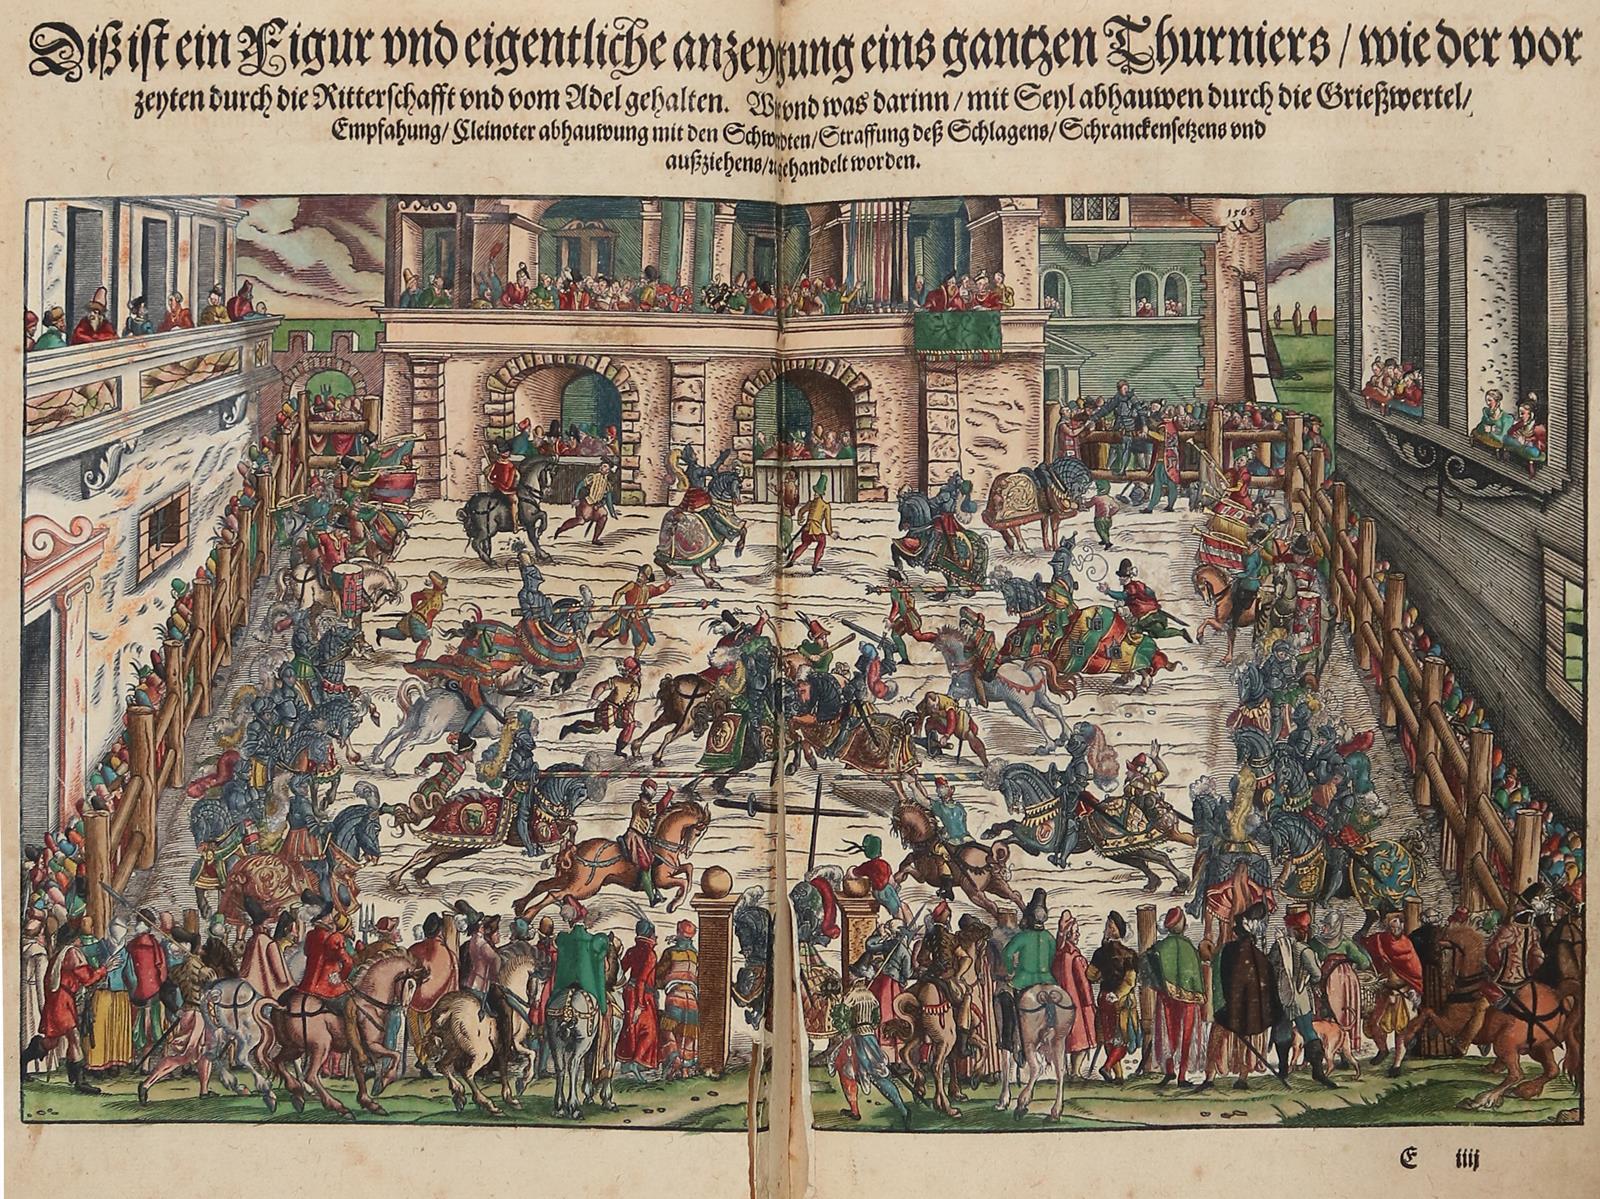 Diß ist ein Figur vnd eigentliche anzeygung eins gantzen Thurniers / wie der vor
zeyten durch die Ritterschafft vnd vom Adel gehalten. vnd was darinn / mit Seyl abhauwen durch die Grießwertel /
Empfahung / Cleinoter abhauwung mit den / Straffung deß Schlagens / Schranckensetzens vnd
außziehens / gehandelt worden.
1565
E iiij